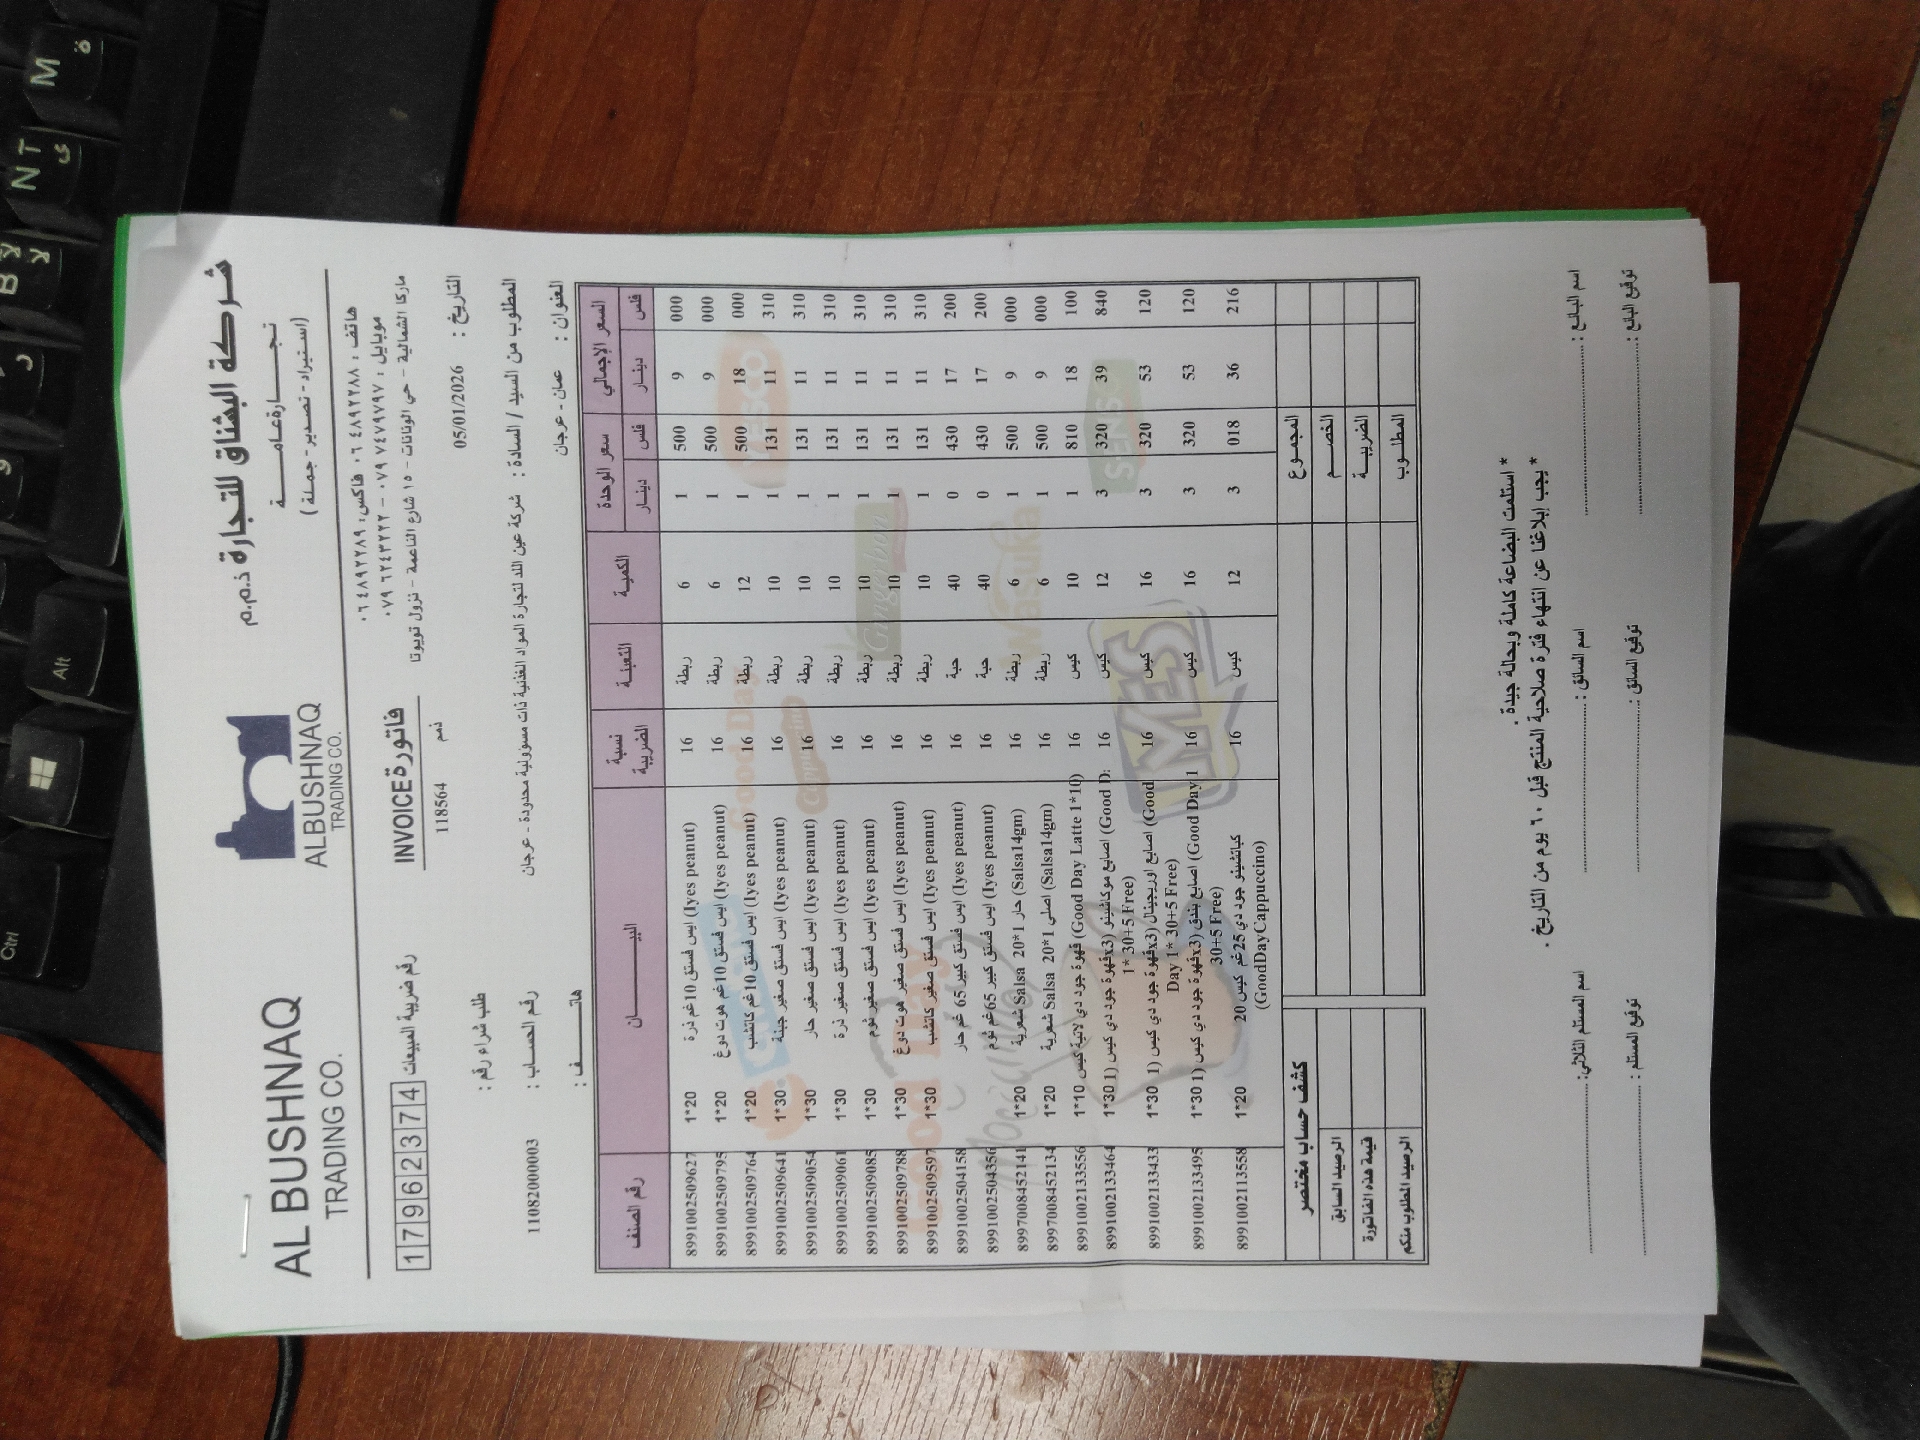 AL BUSHNAQ
TRADING CO.
ALBUSHNAQ
TRADING CO.
شركة البشناق للتجارة ذ.م.م
تجارة عامة
(استيراد - تصدير - جملة)
هاتف : ٠٦ ٤٨٩٢٢٨٨ فاكس: ٠٦ ٤٨٩٢٢٨٩
موبايل : ٠٧٩ ٧٤٧٩٧٩٧ - ٠٧٩ ٦٢٤٣٢٢٢
ماركا الشمالية - حي الونانات - ١٥ شارع الناعمة - نزول تويوتا
رقم ضريبة المبيعات 17962374
فاتورة INVOICE
ذمم
118564
التاريخ : 05/01/2026
طلب شراء رقم :
المطلوب من السيد / السادة : شركة عين اللد لتجارة المواد الغذئية ذات مسؤولية محدودة - عرجان
رقم الحساب : 11082000003
العنوان : عمان - عرجان
هاتف :
رقم الصنف البيان نسبة الضريبة التعبئة الكمية سعر الوحدة دينار فلس السعر الإجمالي دينار فلس
8991002509627 1*20 ايس فستق 10غم ذرة (Iyes peanut) 16 ربطة 6 1 500 9 000
8991002509795 1*20 ايس فستق 10غم هوت دوغ (Iyes peanut) 16 ربطة 6 1 500 9 000
8991002509764 1*20 ايس فستق 10غم كاتشب (Iyes peanut) 16 ربطة 12 1 500 18 000
8991002509641 1*30 ايس فستق صغير جبنة (Iyes peanut) 16 ربطة 10 1 131 11 310
8991002509054 1*30 ايس فستق صغير حار (Iyes peanut) 16 ربطة 10 1 131 11 310
8991002509061 1*30 ايس فستق صغير ذرة (Iyes peanut) 16 ربطة 10 1 131 11 310
8991002509085 1*30 ايس فستق صغير ثوم (Iyes peanut) 16 ربطة 10 1 131 11 310
8991002509788 1*30 ايس فستق صغير هوت دوغ (Iyes peanut) 16 ربطة 10 1 131 11 310
8991002509597 1*30 ايس فستق صغير كاتشب (Iyes peanut) 16 ربطة 10 1 131 11 310
8991002504158 ايس فستق كبير 65 غم حار (Iyes peanut) 16 حبة 40 0 430 17 200
8991002504356 ايس فستق كبير 65غم ثوم (Iyes peanut) 16 حبة 40 0 430 17 200
8997008452141 1*20 شعرية Salsa 20*1 حار (Salsa14gm) 16 ربطة 6 1 500 9 000
8997008452134 1*20 شعرية Salsa 20*1 اصلي (Salsa14gm) 16 ربطة 6 1 500 9 000
8991002133556 1*10 قهوة جود دي لاتية كيس (Good Day Latte 1*10) 16 كيس 10 1 810 18 100
8991002133464 1*30 قهوة جود دي كيس (1x3) اصابع موكاشينو (Good D: 16 كيس 12 3 320 39 840
1* 30+5 Free)
8991002133433 1*30 قهوة جود دي كيس (1x3) اصابع اوريجينال (Good 16 كيس 16 3 320 53 120
Day 1* 30+5 Free)
8991002133495 1*30 قهوة جود دي كيس (1x3) اصابع بندق (Good Day 1 16 كيس 16 3 320 53 120
30+5 Free)
8991002113558 1*20 كباتشينو جود دي 25غم كيس 20 16 كيس 12 3 018 36 216
(GoodDayCappuccino)
كشف حساب مختصر
الرصيد السابق
قيمة هذه الفاتورة
الرصيد المطلوب منكم
المجموع
الخصم
الضريبة
المطلوب
* استلمت البضاعة كاملة وبحالة جيدة .
* يجب إبلاغنا عن انتهاء فترة صلاحية المنتج قبل ٦٠ يوم من التاريخ .
اسم البائع : اسم السائق : اسم المستلم الثلاثي:
توقيع البائع : توقيع السائق : توقيع المستلم :
YESCO
Good Day
Cappuccino
Gingerbon
SENS
Wasuka
IYES
Good Day
Ctrl
Alt
B
N
T
M